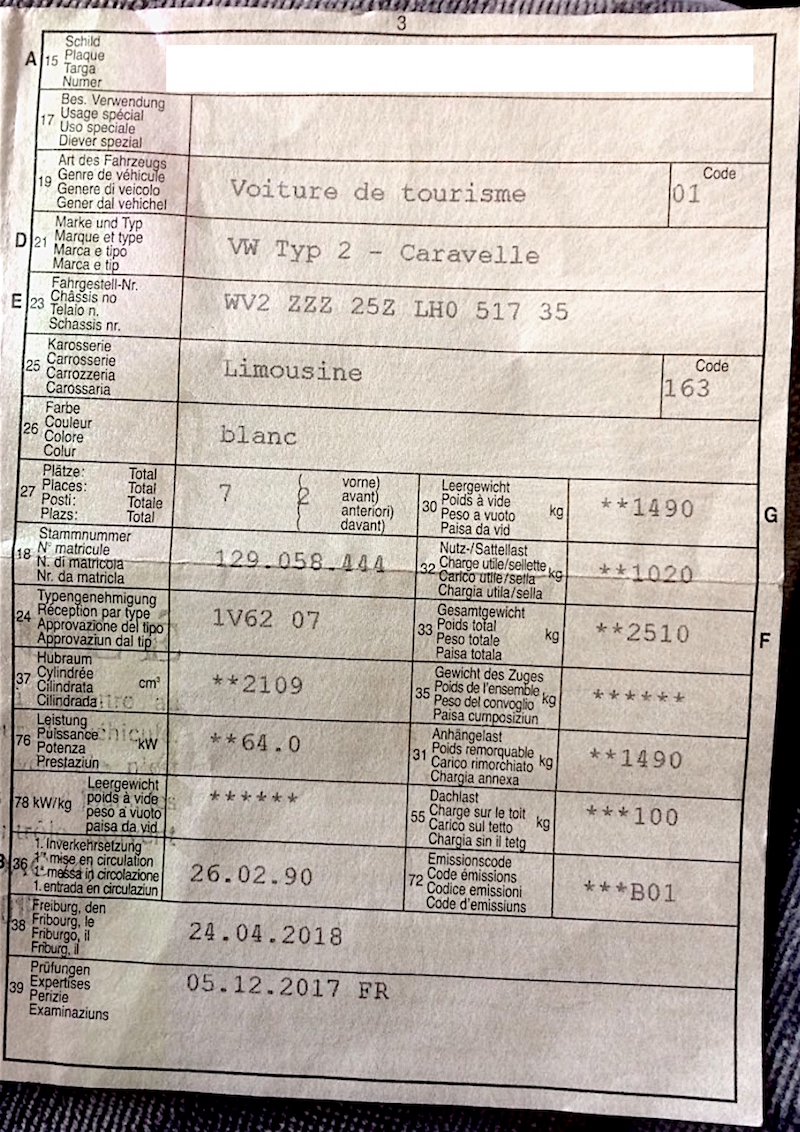 3
A 15 Schild
Plaque
Targa
Numer
17 Bes. Verwendung
Usage spécial
Uso speciale
Diever spezial
19 Art des Fahrzeugs
Genre de véhicule
Genere di veicolo
Gener dal vehichel
Voiture de tourisme
Code
01
D 21 Marke und Typ
Marque et type
Marca e tipo
Marca e tip
VW Typ 2 - Caravelle
E 23 Fahrgestell-Nr.
Châssis no
Telaio n.
Schassis nr.
WV2 ZZZ 25Z LH0 517 35
25 Karosserie
Carrosserie
Carrozzeria
Carossaria
Limousine
Code
163
26 Farbe
Couleur
Colore
Colur
blanc
27 Plätze: Total
Places: Total
Posti: Totale
Plazs: Total
7
2
vorne)
avant)
anteriori)
davant)
30 Leergewicht
Poids à vide
Peso a vuoto
Paisa da vid
kg
**1490
G
18 Stammnummer
N° matricule
N. di matricola
Nr. da matricla
129.058.444
32 Nutz-/Sattellast
Charge utile/sellette
Carico utile/sella
Chargia utila/sella
kg
**1020
24 Typengenehmigung
Réception par type
Approvazione del tipo
Approvaziun dal tip
1V62 07
33 Gesamtgewicht
Poids total
Peso totale
Paisa totala
kg
**2510
F
37 Hubraum
Cylindrée
Cilindrata
Cilindrada
cm³
**2109
35 Gewicht des Zuges
Poids de l'ensemble
Peso del convoglio
Paisa cumposiziun
kg
******
76 Leistung
Puissance
Potenza
Prestaziun
kW
**64.0
31 Anhängelast
Poids remorquable
Carico rimorchiato
Chargia annexa
kg
**1490
78 kW/kg
Leergewicht
poids à vide
peso a vuoto
paisa da vid
******
55 Dachlast
Charge sur le toit
Carico sul tetto
Chargia sin il tetg
kg
***100
36 1. Inverkehrsetzung
1re mise en circulation
1a messa in circolazione
1. entrada en circulaziun
26.02.90
72 Emissionscode
Code émissions
Codice emissioni
Code d'emissiuns
***B01
38 Freiburg, den
Fribourg, le
Friburgo, il
Friburg, il
24.04.2018
39 Prüfungen
Expertises
Perizie
Examinaziuns
05.12.2017 FR